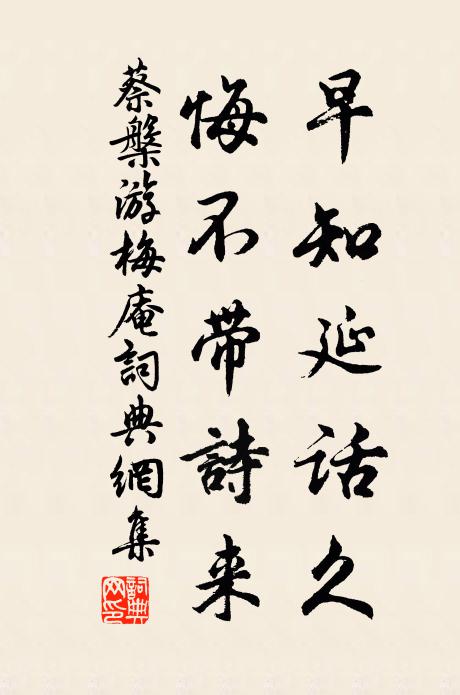 早知延话久
悔不带詩来
蔡槃游梅庵詞典網集
詞典网印